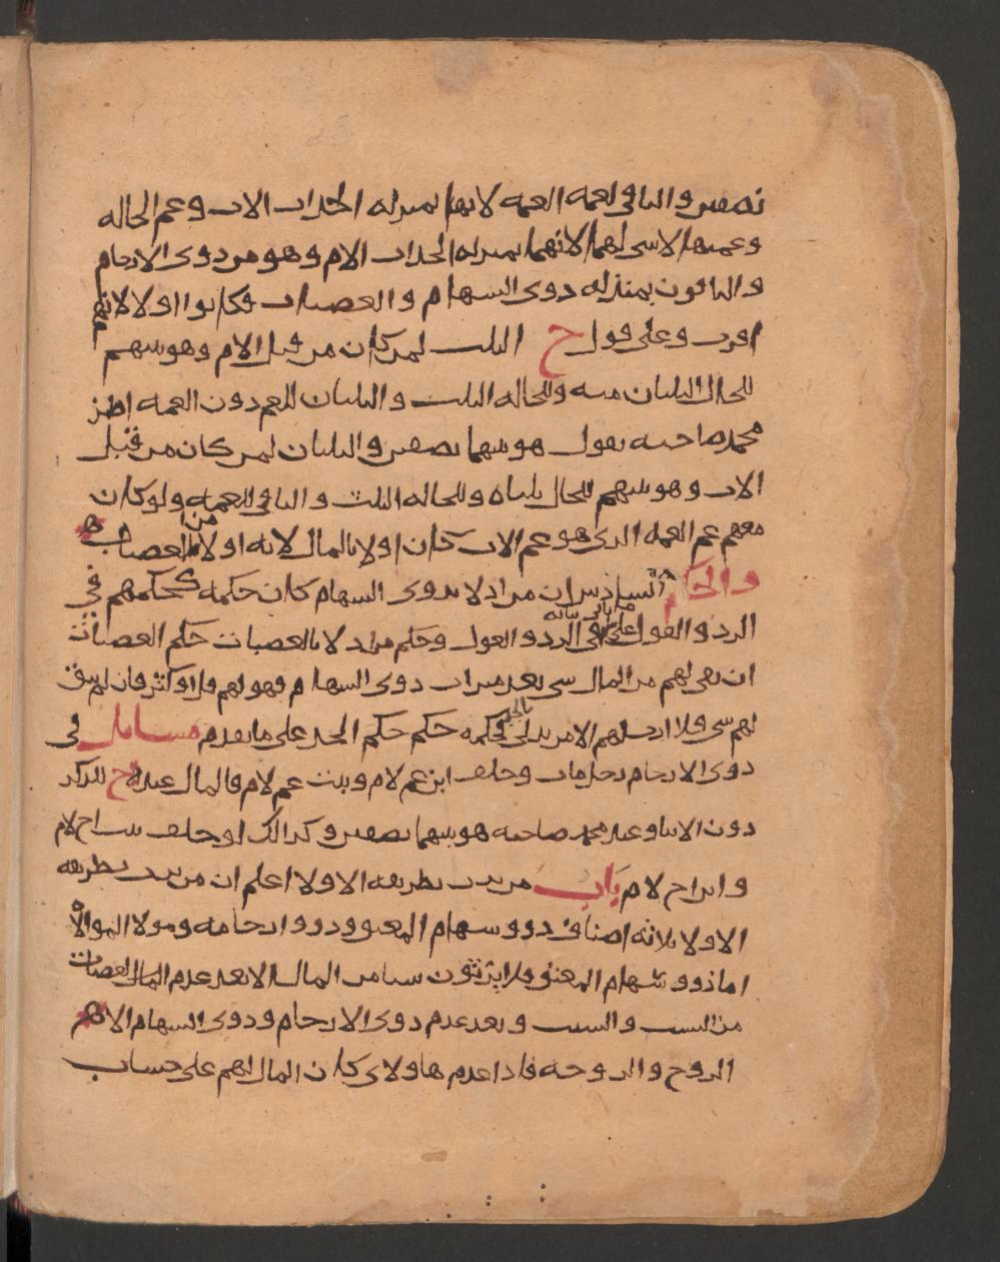 نصفين والباقي لعمه العمه لانها بمنزله الجد اب الاب وعم الخاله
وعمتها لا شي لهما لانهما بمنزله الجد اب الام وهو من ذوي الارحام
والباقون بمنزله ذوي السهام والعصبات فكانوا اولا لانهم
اقرب وعلى قول ح الثلث لمن كان من قبل الام وهو بينهم
للخال الثلثان منه وللخاله الثلث والثلثان للعم دون العمه
محمد صاحبه يقول هو بينهما نصفين والثلثان لمن كان من قبل
الاب وهو بينهم للخال ثلثاه وللخاله الثلث والباقي للعمه ولو كان
معهم عم العمه الذي هو عم الاب كان اولا بالمال لانه اولا من العصبات
والحكم من ادلا بذوي السهام كان حكمه كحكمهم في
الرد والعول على ما ياتي بيانه في الرد والعول وحكم من ادلا بالعصبات حكم العصبات
ان بقي لهم من المال شي بعد ميراث ذوي السهام فهو لهم قل او كثر فان لم يبق
لهم شي فلا ارث لهم الا من يدلي بالجد فحكمه حكم الجد على ما تقدم مسايل في
ذوي الارحام رجل مات وخلف ابن عم لام وبنت عم لام فالمال عند ح للذكر
دون الانثا وعند محمد صاحبه هو بينهما نصفين وكذالك لو خلف بنت اخ لام
وابن اخ لام باب من يرث بطريقه الاولا اعلم ان من يرث بطريقه
الاولا ثلاثه اصناف ذوو سهام المعتق وذوو ارحامه ومولا الموالاه
اما ذوو سهام المعتق فلا يرثون شيا من المال الا بعد عدم العصبات
من النسب والسبب وبعد عدم ذوي الارحام وذوي السهام الا
الزوج والزوجه فاذا عدم هاولاي كان المال لهم على حساب